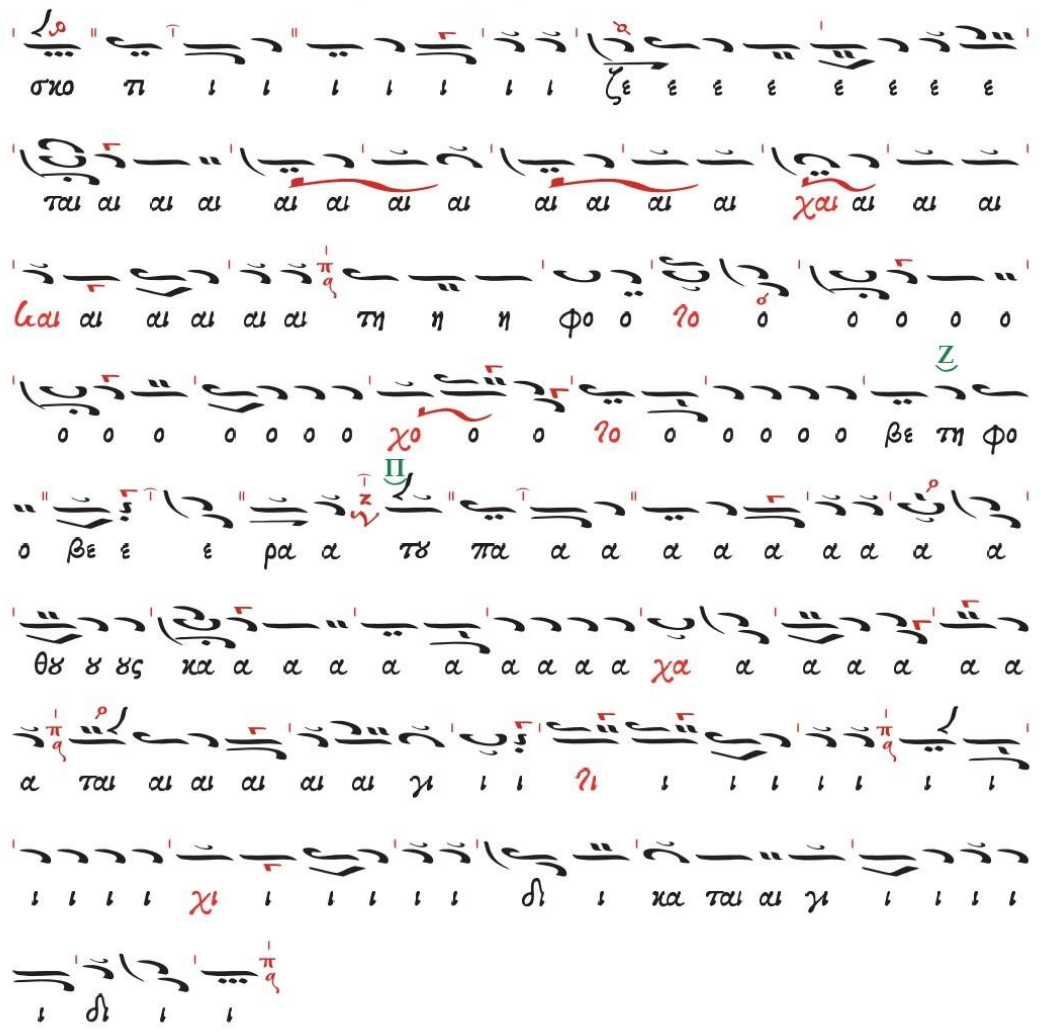 σκο τι ι ι ι ι ι ι ι ζε ε ε ε ε ε ε ε
ται αι αι αι αι αι αι αι αι αι αι αι χαι αι αι αι
και αι αι αι αι αι τη η η φο ο γο ο ο ο ο ο
ο ο ο ο ο ο ο χο ο ο γο ο ο ο ο ο βε τη φο
ο βε ε ε ρα α τȣ πα α α α α α α α α α
θȣ ȣ ȣς κα α α α α α α α α α χα α α α α α α
α ται αι αι αι αι αι γι ι ι γι ι ι ι ι ι ι ι
ι ι ι ι χι ι ι ι ι ι δι ι κα ται αι γι ι ι ι ι
ι δι ι ι